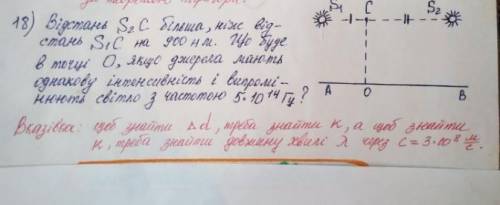 S₁ C S₂
18) Відстань S₂C більша, ніж від-
стань S₁C на 900 нм. Що буде
в точці О, якщо джерела мають
однакову інтенсивність і випромі-
нюють світло з частотою 5·10¹⁴Гц?
A O B
Вказівка: щоб знайти Δd, треба знайти к, а щоб знайти
к, треба знайти довжину хвилі λ через c = 3·10⁸ м/с.